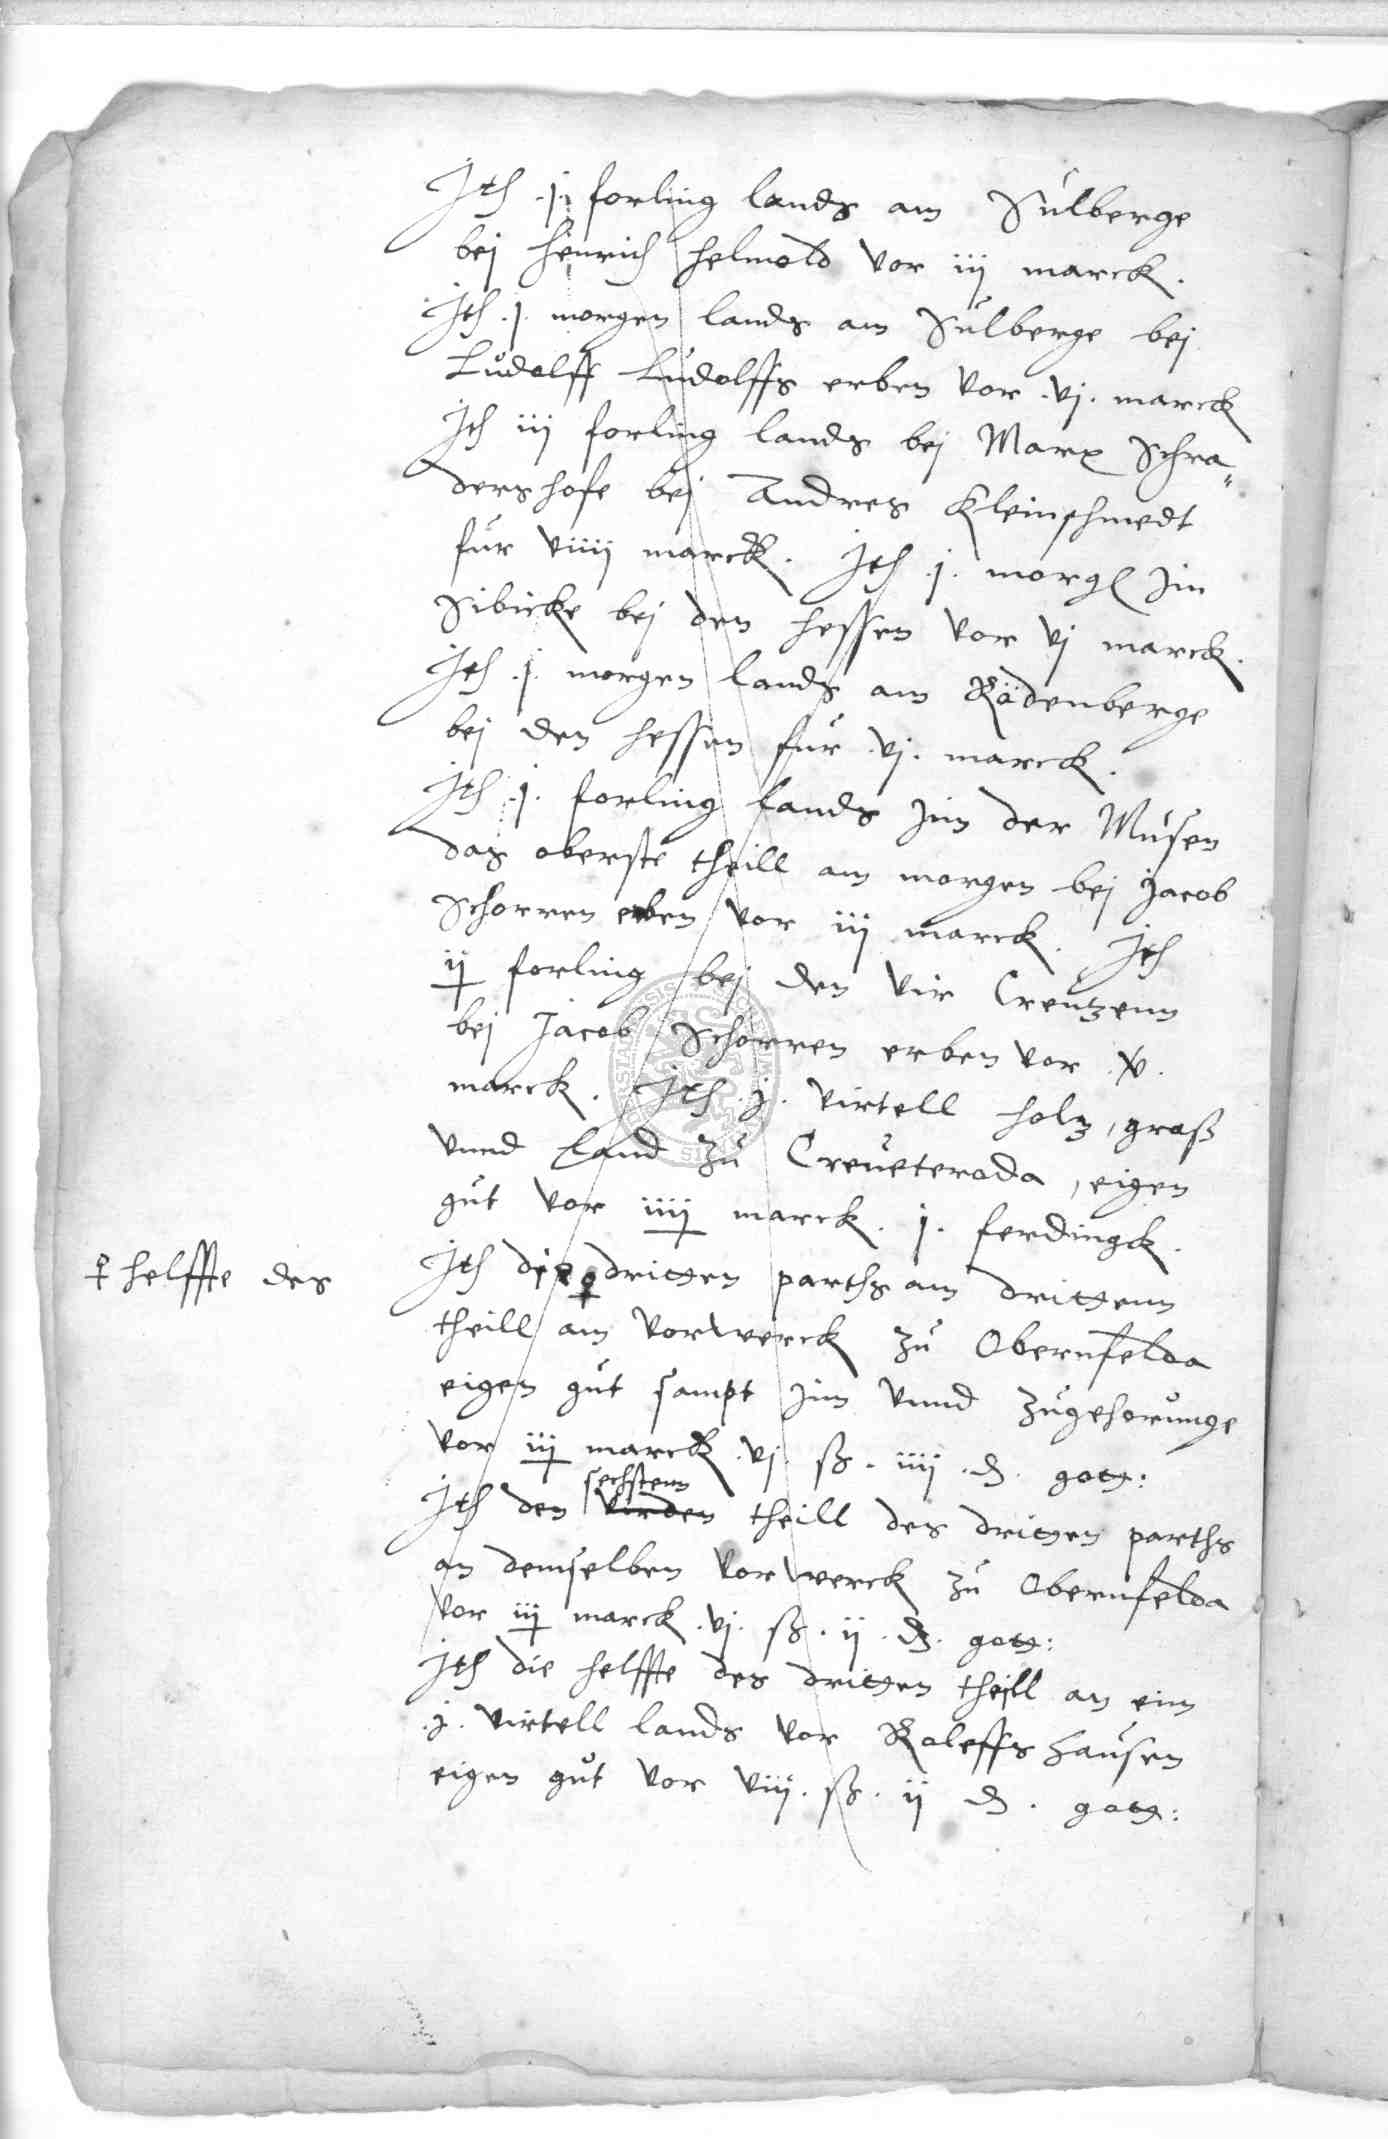 Jth .j. forling lands am Sulberge
bej Henrich Helmold vor iij marck.
Jth .j. morgen lands am Sulberge bej
Ludolff Ludolffs erben vor .vj. marck
Jth iij forling lands bej Marx Schra„
ders hofe bej Andres Kleinschmedt
fur viiij marck. Jth .j. morg Jm
Sibicke bej den hessen vor vj marck.
Jth .j. morgen lands am Rodenberge
bej den hessen fur .vj. marck.
Jth .j. forling lands Jnn der Musen
das oberste theill am morgen bej Jacob
Schorren erben vor iij marck. Jth
ij forling bej den vir Creutzenn
bej Jacob Schorren erben vor .v.
marck. Jth .j. virtell holz, graß
vnnd Land zu Creueteroda, eigen
gut vor iiij marck. j. ferdingck.
helffte des
Jth die dritten parths am drittenn
theill am vorwerck zu Obernfelda
eigen gut sampt Jnn vnnd zugehorunge
vor iij marck .vj. ß. iiij .d. gott:
sechstenn
Jth den virden theill des dritten parths
an demselben vorwerck zu Obernfelda
vor iij marck .vj. ß. ij .d. gott:
Jth die helffte des dritten theill an eim
.j. virtell lands vor Roleffshausen
eigen gut vor viij. ß. ij d. gott: